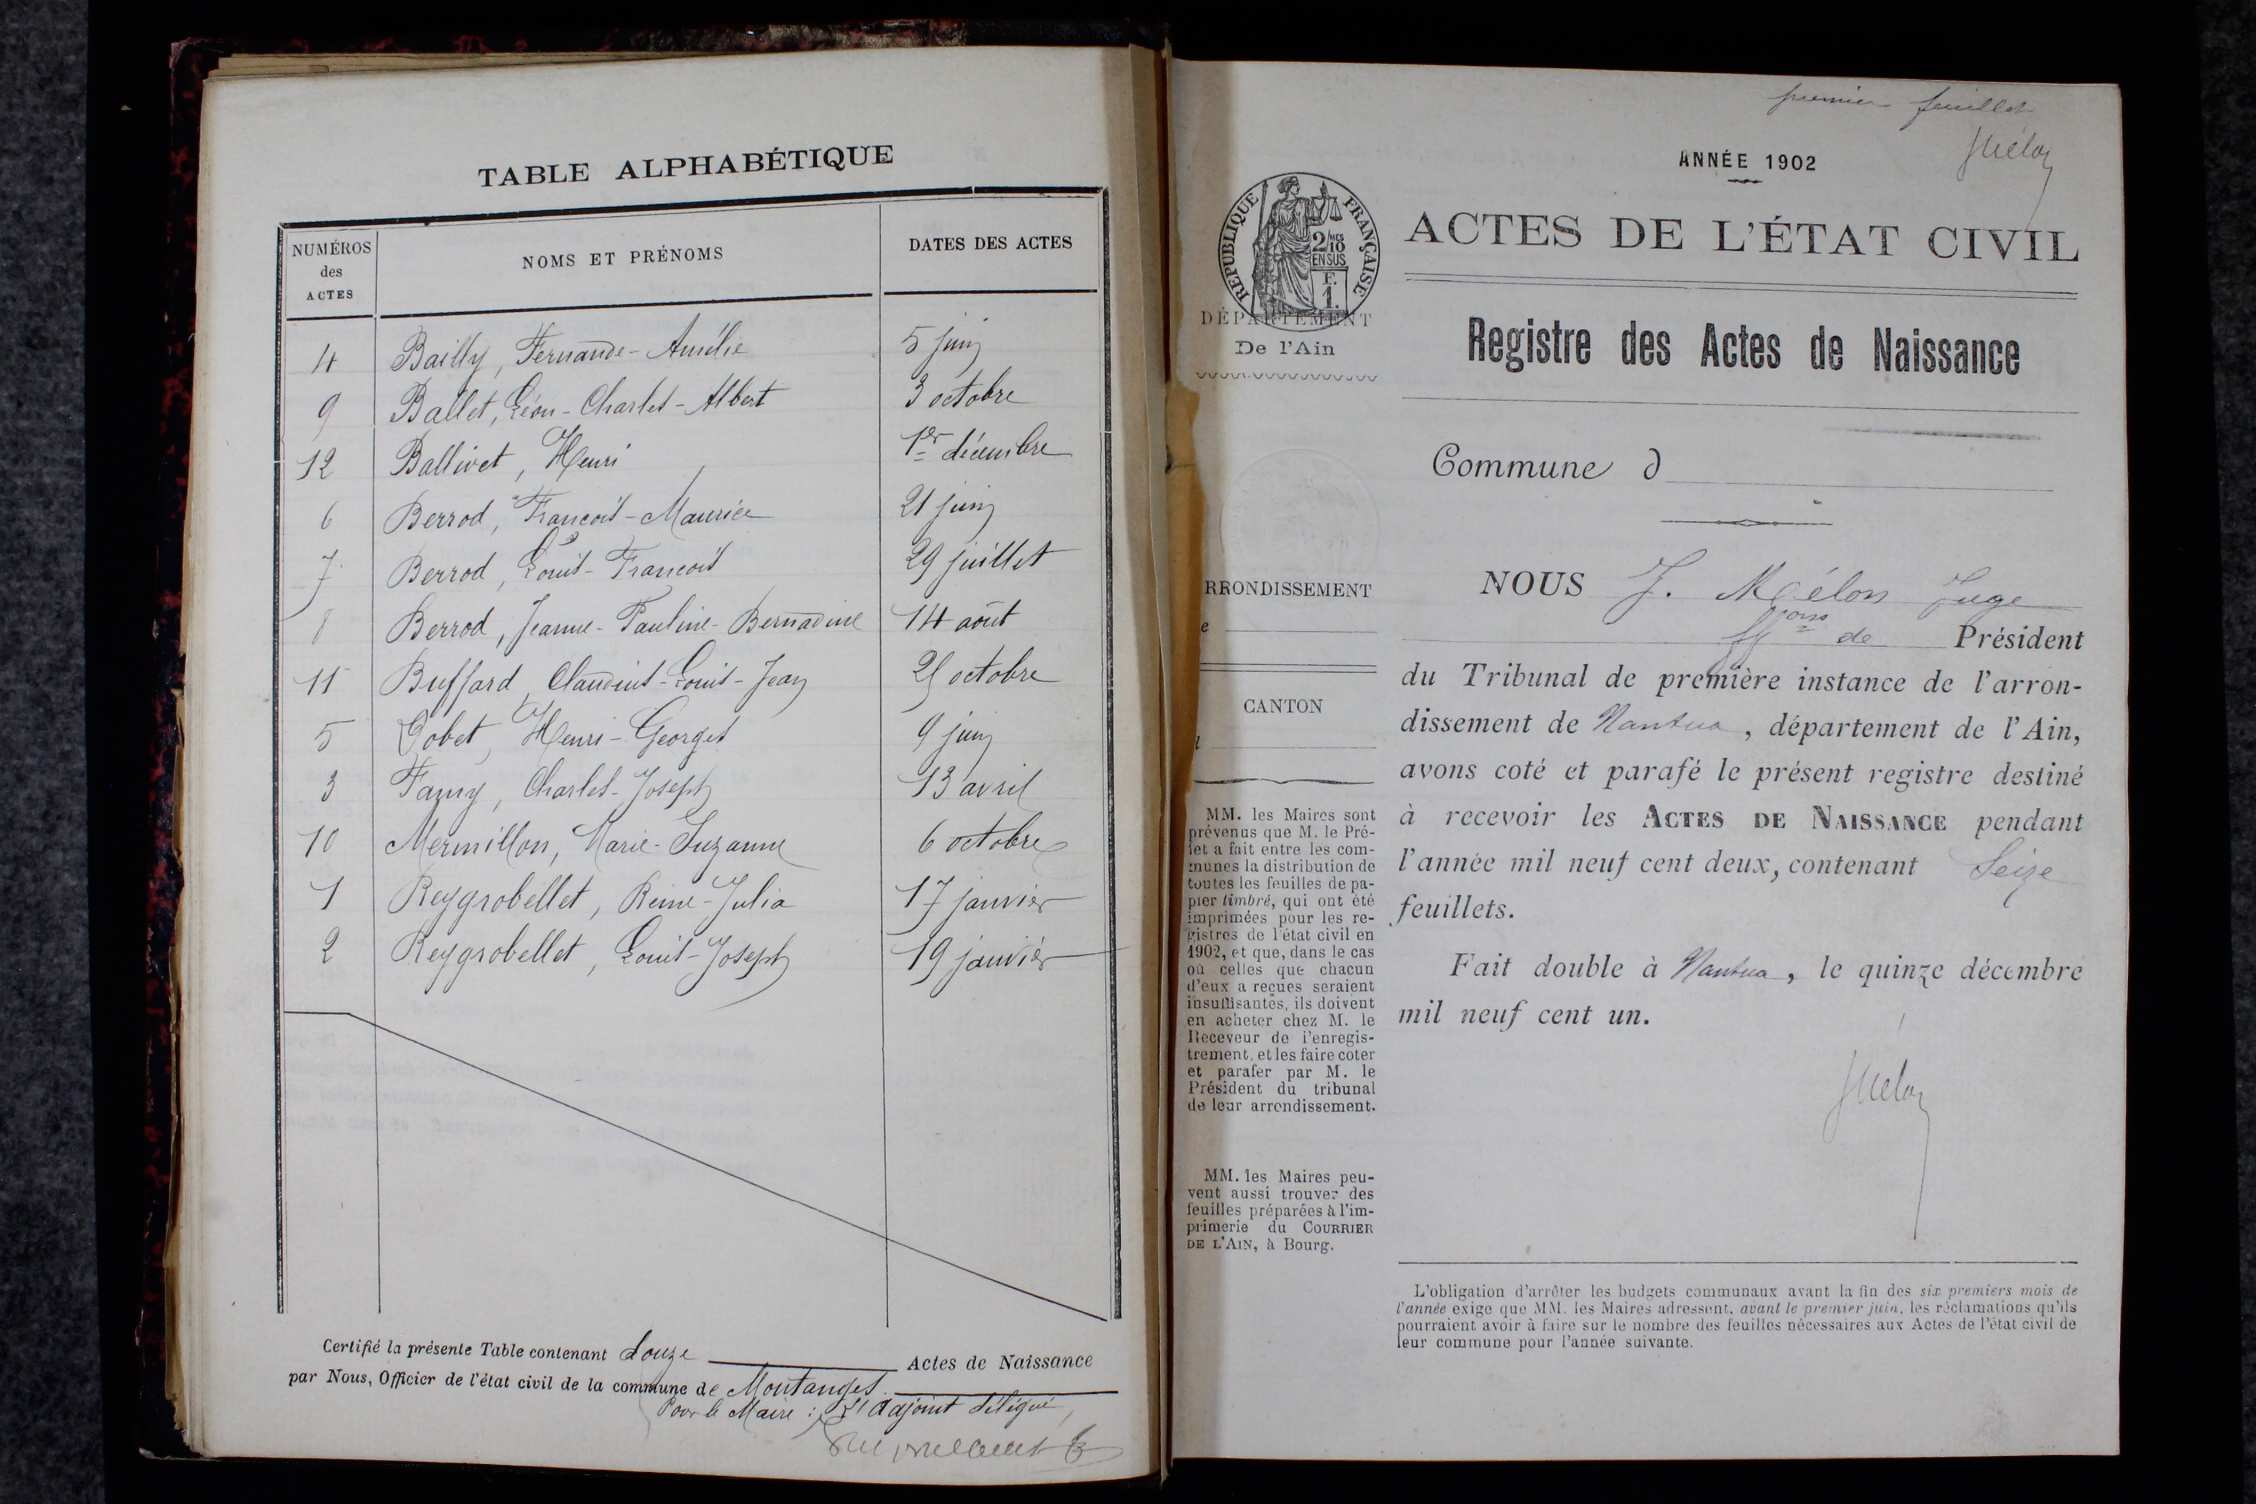 TABLE ALPHABÉTIQUE
NUMÉROS
des
ACTES
NOMS ET PRÉNOMS
DATES DES ACTES
4 Bailly, Fernande-Amélie 5 juin
9 Ballet, Léon-Charles-Albert 3 octobre
12 Ballivet, Henri 1er décembre
6 Berrod, François-Maurice 21 juin
7 Berrod, Louis-François 29 juillet
8 Berrod, Jeanne-Pauline-Bernadine 14 août
11 Buffard, Claudius-Louis-Jean octobre
5 Gobet, Henri-Georges 9 juin
3 Famy, Charles-Joseph 13 avril
10 Mermillon, Marie-Suzanne 6 octobre
1 Reygrobellet, Reine-Julia 17 janvier
2 Reygrobellet, Louis-Joseph 19 janvier
Certifié la présente Table contenant douze Actes de Naissance
par Nous, Officier de l'état civil de la commune de Montanges.
Pour le Maire : L'adjoint délégué,
premier feuillet
JMélon
ANNÉE 1902
RÉPUBLIQUE FRANÇAISE
2/10 MES
EN SUS
F.
1.
ACTES DE L'ÉTAT CIVIL
DÉPARTEMENT
De l'Ain
Registre des Actes de Naissance
Commune d
RRONDISSEMENT
e
CANTON
NOUS J. Mélon Juge
ffons de Président
du Tribunal de première instance de l'arron-
dissement de Nantua, département de l'Ain,
avons coté et parafé le présent registre destiné
à recevoir les ACTES DE NAISSANCE pendant
l'année mil neuf cent deux, contenant Seize
feuillets.
Fait double à Nantua, le quinze décembre
mil neuf cent un.
JMélon
MM. les Maires sont
prévenus que M. le Pré-
fet a fait entre les com-
munes la distribution de
toutes les feuilles de pa-
pier timbré, qui ont été
imprimées pour les re-
gistres de l'état civil en
1902, et que, dans le cas
où celles que chacun
d'eux a reçues seraient
insuffisantes, ils doivent
en acheter chez M. le
Receveur de l'enregis-
trement, et les faire coter
et parafer par M. le
Président du tribunal
de leur arrondissement.
MM. les Maires peu-
vent aussi trouver des
feuilles préparées à l'im-
primerie du COURRIER
DE L'AIN, à Bourg.
L'obligation d'arrêter les budgets communaux avant la fin des six premiers mois de
l'année exige que MM. les Maires adressent, avant le premier juin, les réclamations qu'ils
pourraient avoir à faire sur le nombre des feuilles nécessaires aux Actes de l'état civil de
leur commune pour l'année suivante.